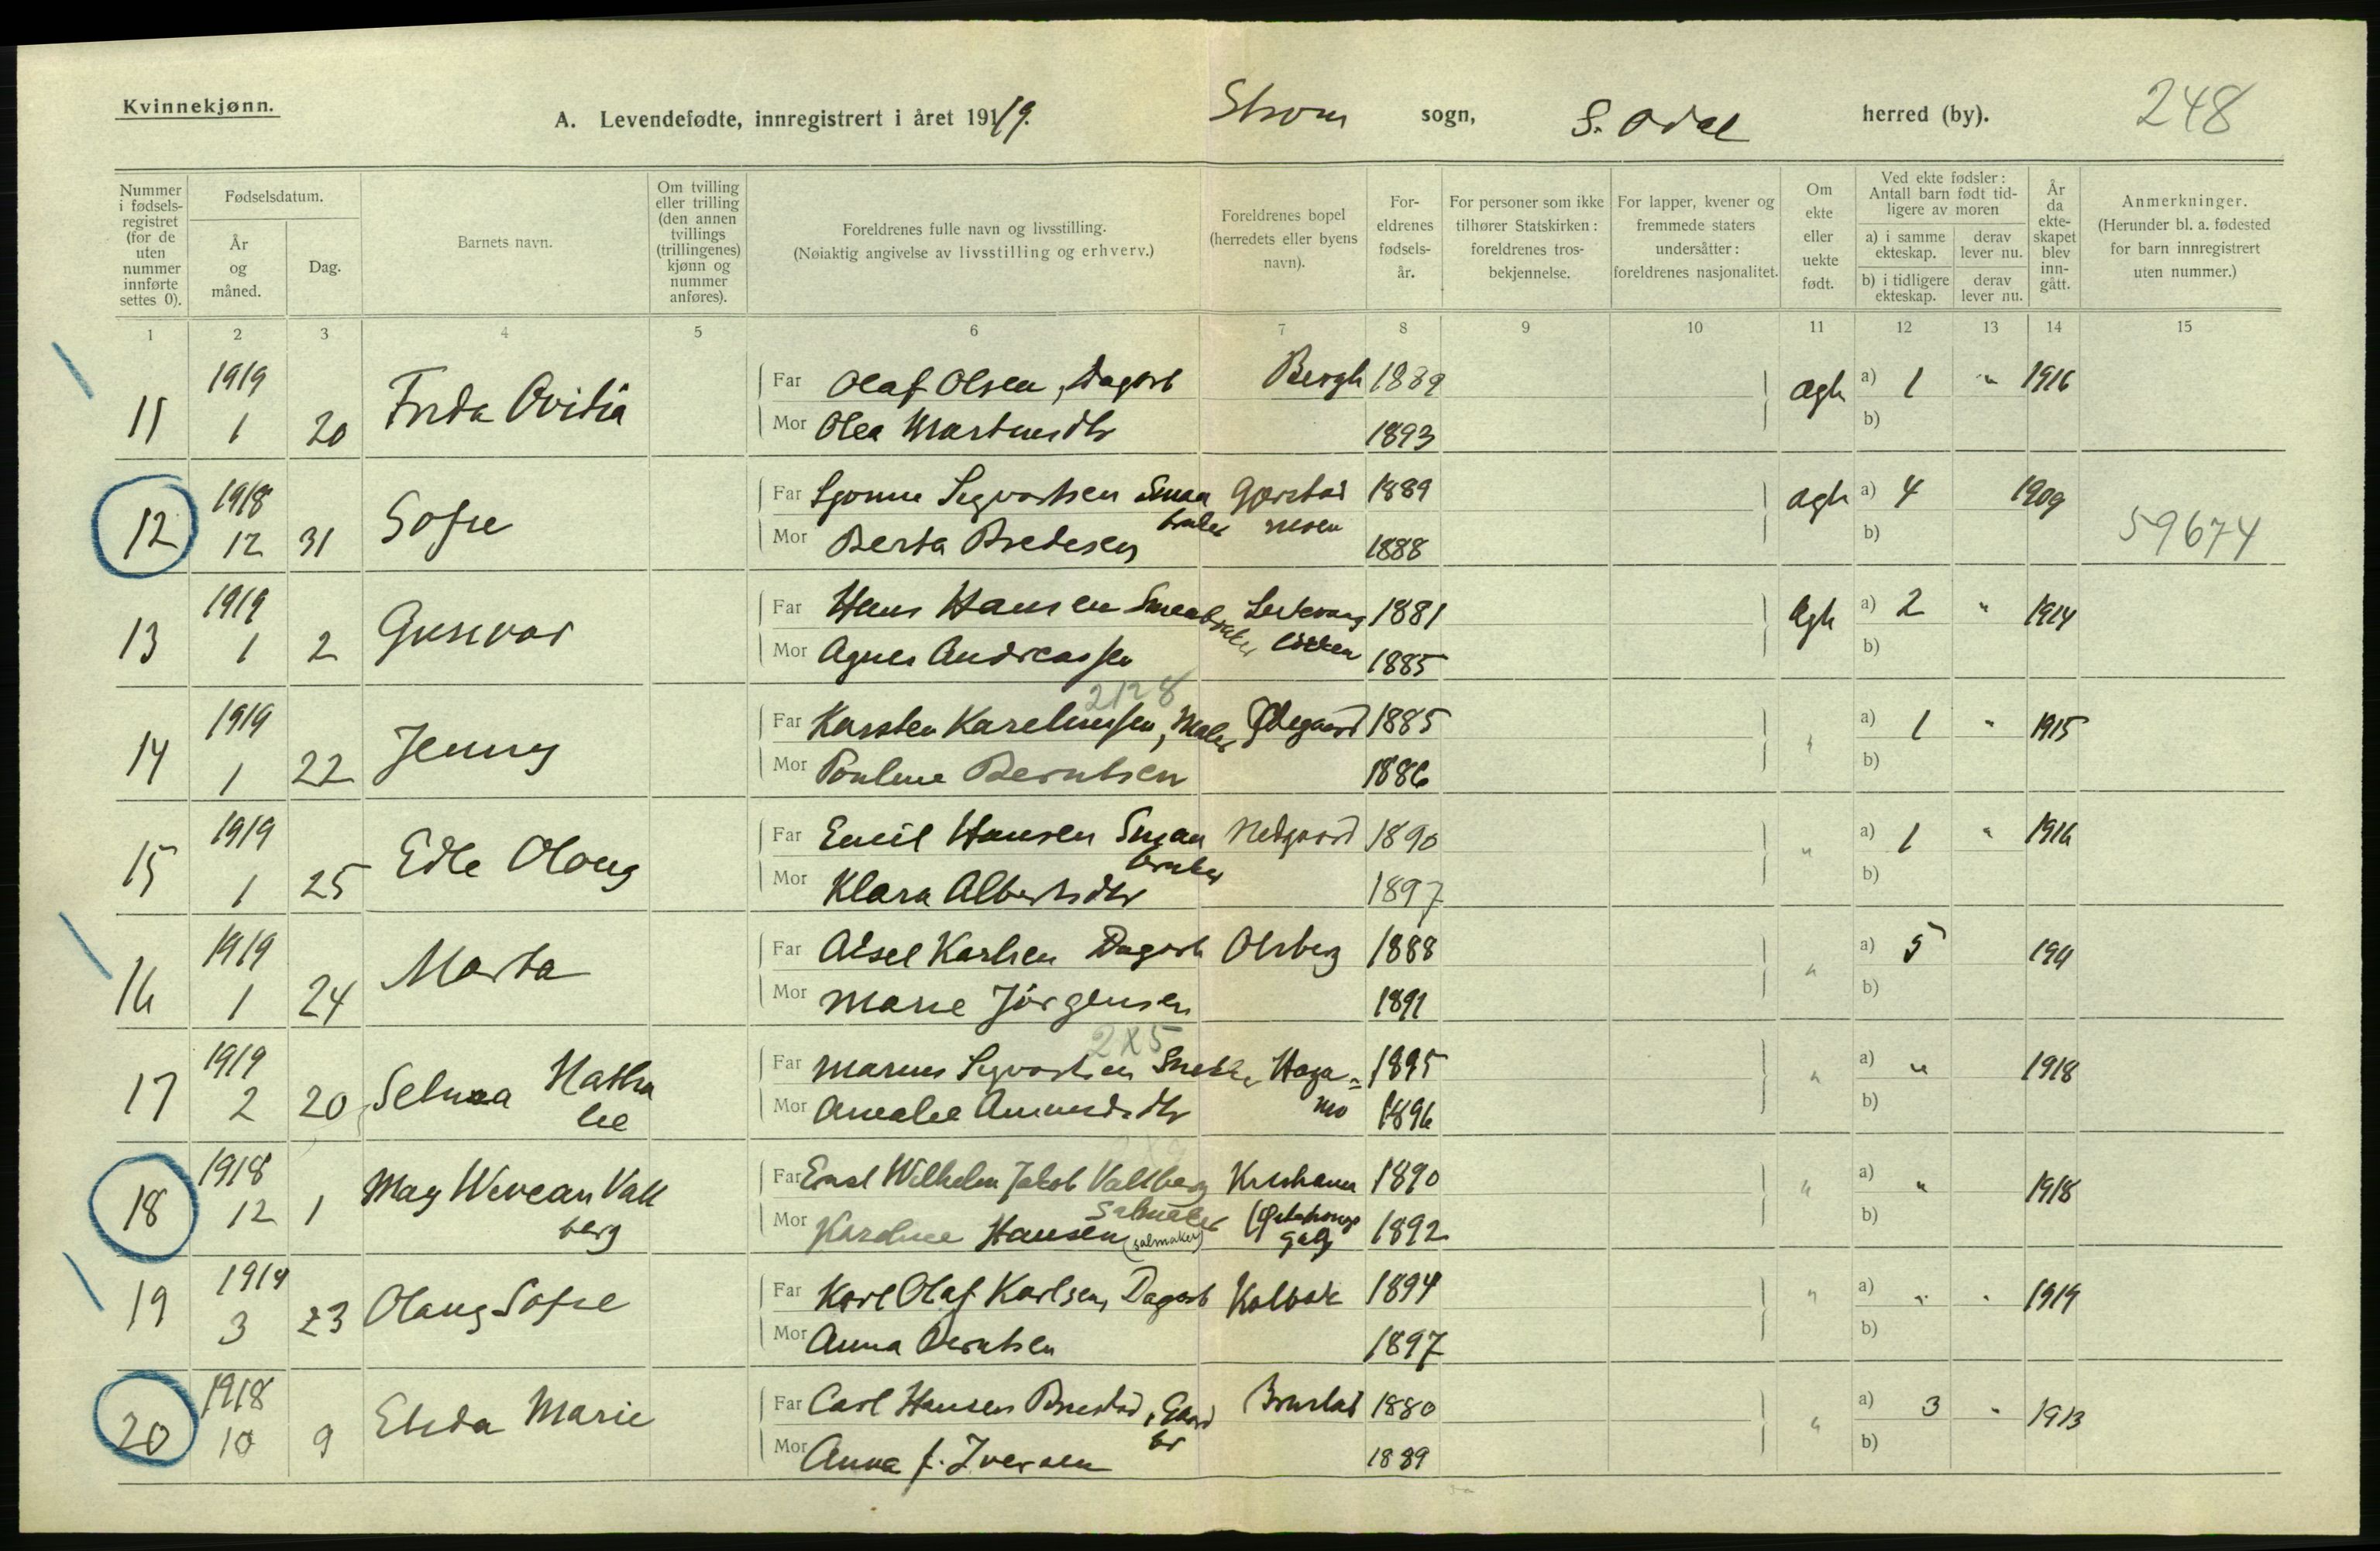 Kvinnekjønn.
A. Levendefødte, innregistrert i året 191/19. Strøm sogn, S. Odal herred (by). 248
Nummer i fødsels-registret (for de uten nummer innførte settes 0).
Fødselsdatum.
År og måned.
Dag.
Barnets navn.
Om tvilling eller trilling (den annen tvillings (trillingenes) kjønn og nummer anføres).
Foreldrenes fulle navn og livsstilling.
(Nøiaktig angivelse av livsstilling og erhverv.)
Foreldrenes bopel (herredets eller byens navn).
For-eldrenes fødsels-år.
For personer som ikke tilhører Statskirken: foreldrenes tros-bekjennelse.
For lapper, kvener og fremmede staters undersåtter: foreldrenes nasjonalitet.
Om ekte eller uekte født.
Ved ekte fødsler: Antall barn født tid-ligere av moren
a) i samme ekteskap.
derav lever nu.
b) i tidligere ekteskap.
derav lever nu.
År da ekte-skapet blev inn-gått.
Anmerkninger.
(Herunder bl. a. fødested for barn innregistrert uten nummer.)
1 2 3 4 5 6 7 8 9 10 11 12 13 14 15
11 1919 1 20 Frida Ovidia Far Olaf Olsen, Dagarb Bergh 1889 ægh a) 1 " 1916
Mor Olea Martinsdtr 1893 b)
12 1918 12 31 Sofie Far Sigvartsen Smaa 1889 ægh a) 4 1909
bruker
Mor Berta Bredesen 1888 b) 59674
13 1919 1 2 Gunvor Far Hans Hansen Smaabruker 1881 ægh a) 2 " 1914
Mor Agnes Andreassen 1885 b)
2128
14 1919 1 22 Jenny Far Karsten Kareliussen, Maler Ødegaard 1885 " a) 1 " 1915
Mor Pauline Berntsen 1886 b)
15 1919 1 25 Edle Olaug Far Emil Hansen Smaa Nedgaard 1890 " a) 1 " 1916
bruker
Mor Klara Albertsdtr 1897 b)
16 1919 1 24 Marta Far Aksel Karlsen Dagarb Olsberg 1888 " a) 5 1911
Mor Marie Jörgensen 1891 b)
2x5
17 1919 2 20 Selma Natha Far Marius Sigvartsen Snekker Haga= 1895 " a) " 1918
lie Mor Amalie Amundsdtr mo 1896 b)
18 1918 12 1 May Wivean Vall Far Ernst Wilhelm Jakob Vallberg Kristiania 1890 " a) " 1918
berg Salmaker
Mor Karoline Hansen (salmaker) 1892 b)
19 1919 3 23 Olaug Sofie Far Karl Olaf Karlsen, Dagarb Kolbak 1894 " a) " " 1919
Mor Anna Berntsen 1897 b)
20 1918 10 9 Elida Marie Far Carl Hansen Brustad, Gaard Brustad 1880 " a) 3 " 1913
br
Mor Anna f. Iversen 1889 b)